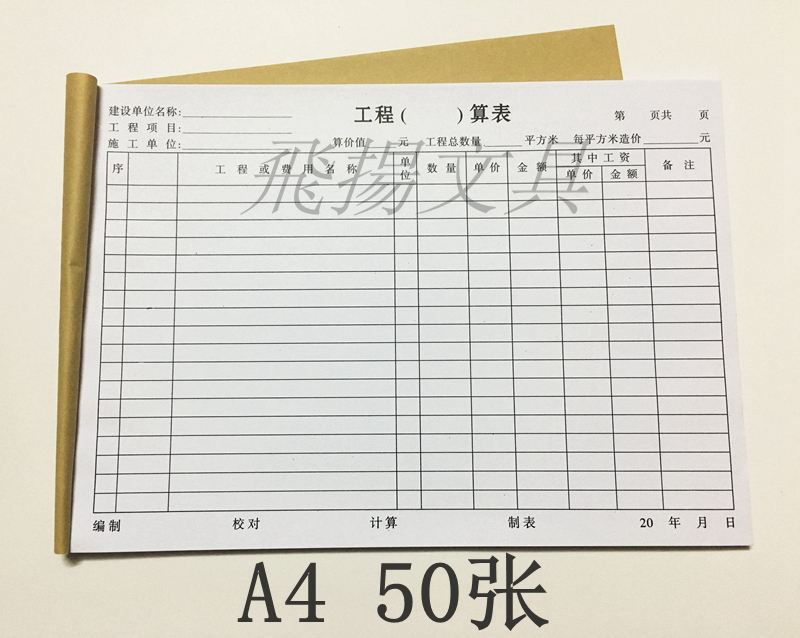 工程(　　)算表
建设单位名称:
第　页共　页
工程项目:
施工单位:　算价值　元　工程总数量　平方米　每平方米造价　元
序　工程或费用名称　单位　数量　单价　金额　其中工资　备注
单价　金额
飛揚文具
编制　校对　计算　制表　20　年　月　日
A4 50张